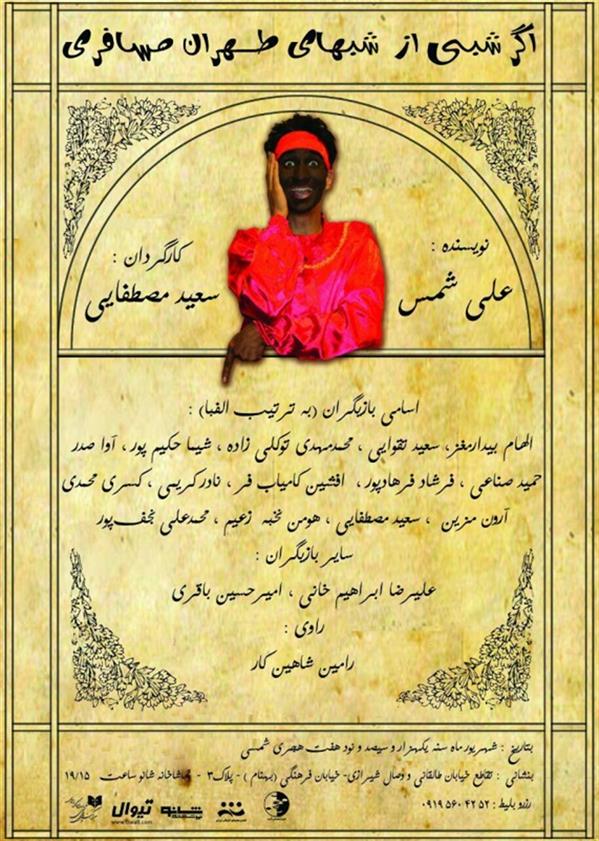 اگر شبی از شبهای طهران مسافری
نویسنده :
علی شمس
کارگردان :
سعید مصطفایی
اسامی بازیگران (به ترتیب الفبا) :
الهام بیدارمغز، سعید تقوایی ، محمدمهدی توکلی زاده ، شیما حکیم پور ، آوا صدر
حمید صناعی ، فرشاد فرهادپور ، افشین کامیاب فر ، نادر کریمی ، کسری محمدی
آرون مزین ، سعید مصطفایی ، هومن نخبه زعیم ، محمدعلی نجف پور
سایر بازیگران :
علیرضا ابراهیم خانی ، امیرحسین باقری
راوی :
رامین شاهین کار
بتاریخ : شهریور ماه سنه یکهزار و سیصد و نود هفت هجری شمسی
بنشانی : تقاطع خیابان طالقانی و وصال شیرازی- خیابان فرهنگی (بهنام ) - پلاک۳ - تماشاخانه شانو ساعت ۱۹/۱۵
رزرو بلیط : ۰۹۱۹ ۵۶۰ ۴۲ ۵۲
تیوال
www.tiwall.com